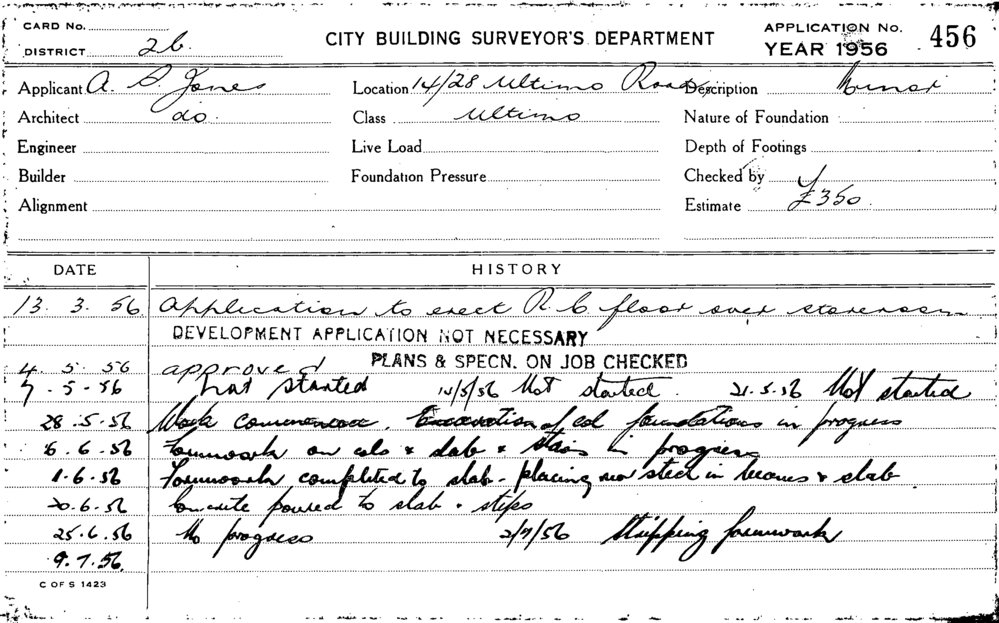 CARD No.
DISTRICT 2b
CITY BUILDING SURVEYOR'S DEPARTMENT
APPLICATION No. 456
YEAR 1956
Applicant A. S. Jones Location 14/28 Ultimo Road Description Minor
Architect do. Class Ultimo Nature of Foundation
Engineer Live Load Depth of Footings
Builder Foundation Pressure Checked by
Alignment Estimate £350
DATE HISTORY
13. 3. 56 Application to erect R.C. floor over storeroom
DEVELOPMENT APPLICATION NOT NECESSARY
PLANS & SPECN. ON JOB CHECKED
4. 5. 56 approved
7. 5. 56 Not started 14/5/56 Not started. 21.5.56 Not started
28.5.56 Work commenced. Excavation of col foundations in progress
6.56 Formwork on cols & slab & stairs in progress
1.6.56 Formwork completed to slab - placing steel in beams & slab
20.6.56 Concrete poured to slab & steps
25.6.56 No progress 2/7/56 Stripping formwork
9.7.56
C OF S 1423